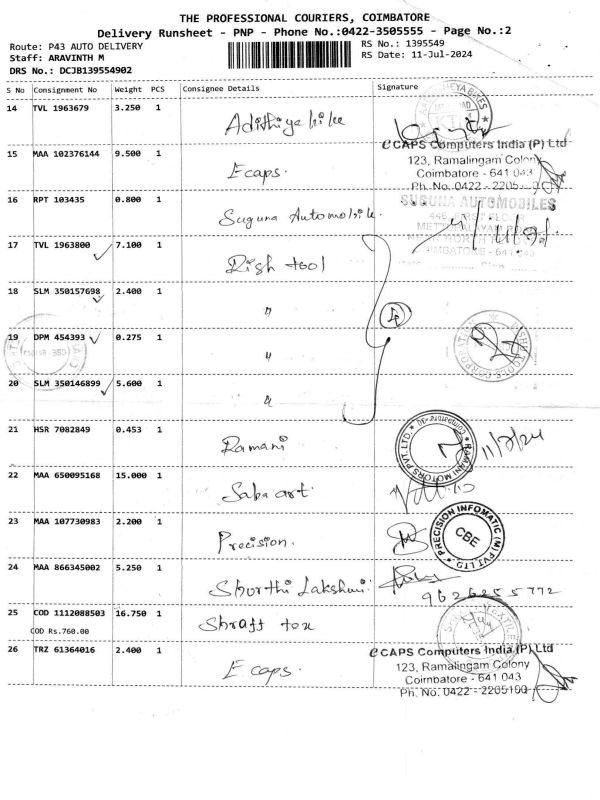 THE PROFESSIONAL COURIERS, COIMBATORE
Delivery Runsheet - PNP - Phone No.:0422-3505555 - Page No.:2
Route: P43 AUTO DELIVERY
RS No.: 1395549
Staff: ARAVINTH M
RS Date: 11-Jul-2024
DRS No.: DCJB139554902
S No Consignment No Weight PCS Consignee Details Signature
14 TVL 1963679 3.250 1 Adithiya bike
15 MAA 102376144 9.500 1 Ecaps.
eCAPS Computers India (P) Ltd
123, Ramalingam Colony
Coimbatore - 641 043
Ph. No. 0422 - 2205
16 RPT 103435 0.800 1 Suguna Automobile.
SUGUNA AUTOMOBILES
17 TVL 1963800 7.100 1 Rish tool
18 SLM 350157698 2.400 1 "
4
19 DPM 454393 0.275 1 "
20 SLM 350146899 5.600 1 "
21 HSR 7082849 0.453 1 Ramani
RAMANI MOTORS PVT. LTD.
11/7/24
22 MAA 650095168 15.000 1 Saba art
23 MAA 107730983 2.200 1 Precision.
PRECISION INFOMATIC (M) PVT LTD
CBE
24 MAA 866345002 5.250 1 Shurthi Lakshmi
9626255772
25 COD 1112088503 16.750 1 Shraff tex
COD Rs.760.00
26 TRZ 61364016 2.400 1 Ecaps.
eCAPS Computers India (P) Ltd
123, Ramalingam Colony
Coimbatore - 641 043
Ph. No. 0422 - 2205100